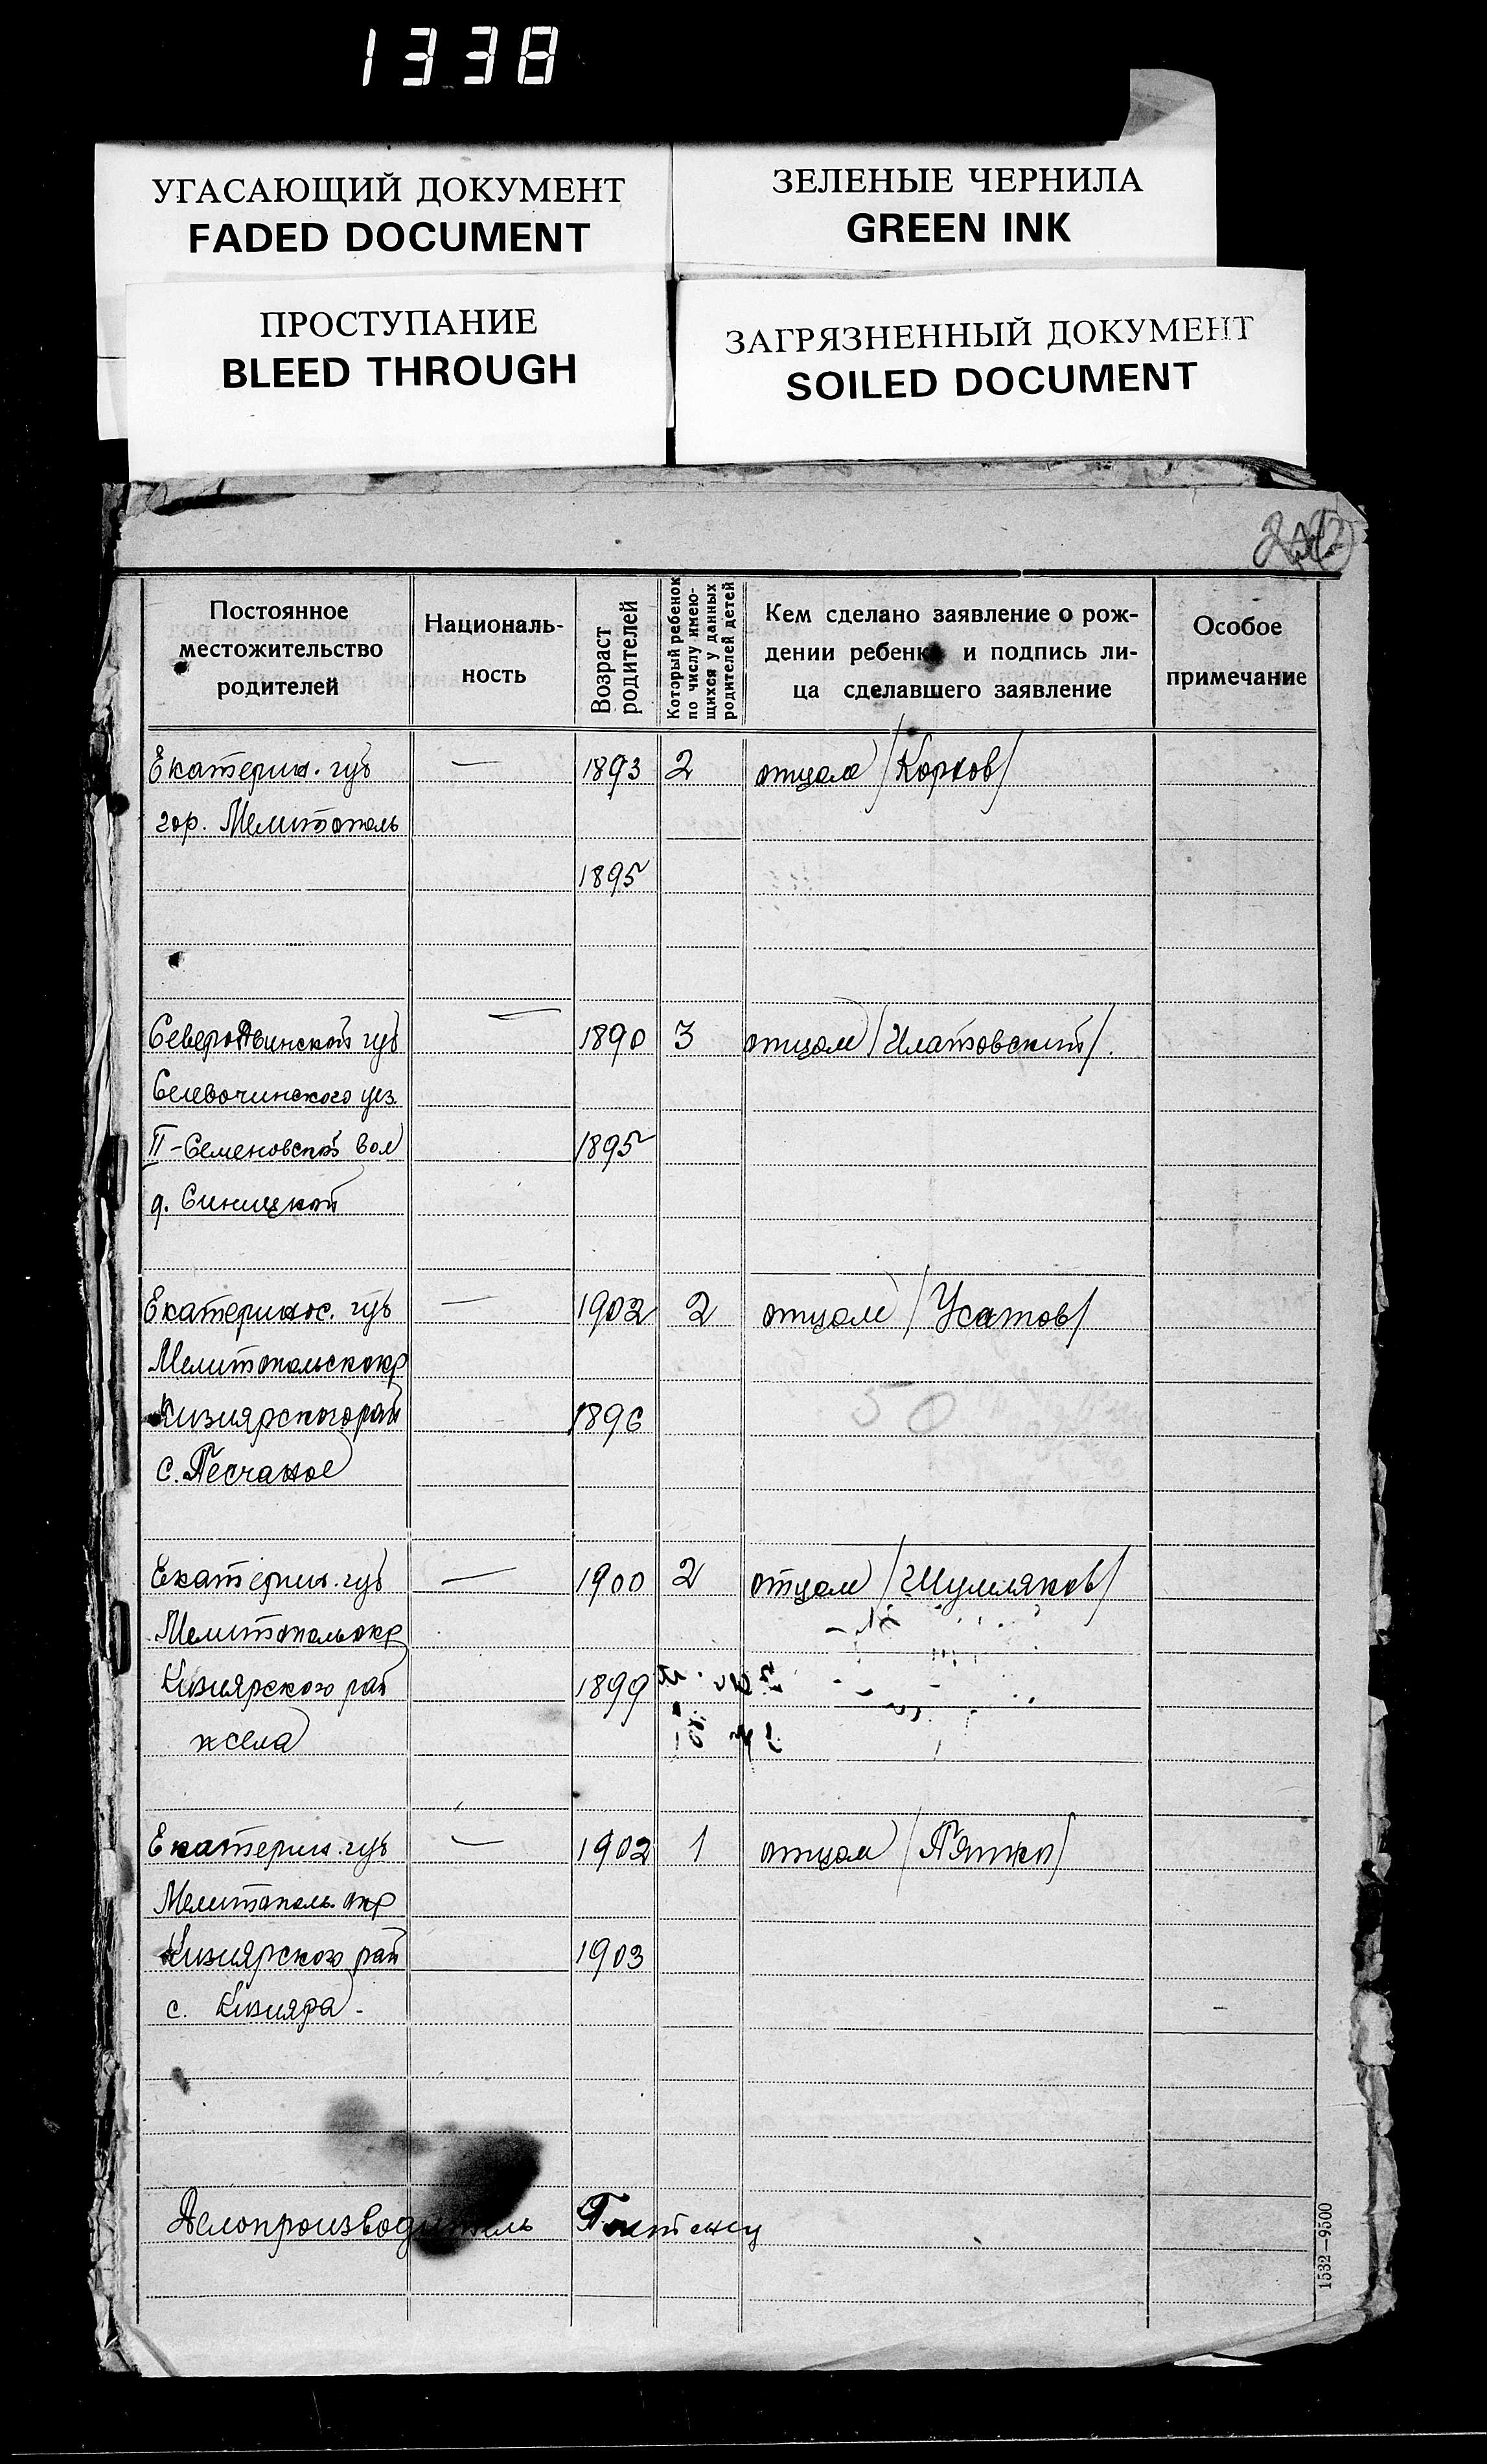 1338
УГАСАЮЩИЙ ДОКУМЕНТ
FADED DOCUMENT
ЗЕЛЕНЫЕ ЧЕРНИЛА
GREEN INK
ПРОСТУПАНИЕ
BLEED THROUGH
ЗАГРЯЗНЕННЫЙ ДОКУМЕНТ
SOILED DOCUMENT
Постоянное
местожительство
родителей
Националь-
ность
Возраст
родителей
Который ребенок
по числу имею-
щихся у данных
родителей детей
Кем сделано заявление о рож-
дении ребенка и подпись ли-
ца сделавшего заявление
Особое
примечание
Екатерин. губ — 1893 2 отцом /Корков/
гор. Мелитополь
1895
СевероДвинской губ — 1890 3 отцом /Илатовский/.
уез.
II-Семеновской вол 1895
д. Синицкой
Екатеринос. губ — 1902 2 отцом /Усатов/
Мелитопольск окр
Кизиярского рай 1896
с. Песчаное
50
Екатерин. губ — 1900 2 отцом /Шумляков/
Мелитополь окр
Кизиярского рай 1899
ж села
Екатерин. губ — 1902 1 отцом /Пятко/
Мелитополь. окр
Кизиярского рай 1903
с. Кизияра -
Делопроизводитель
1532—9500